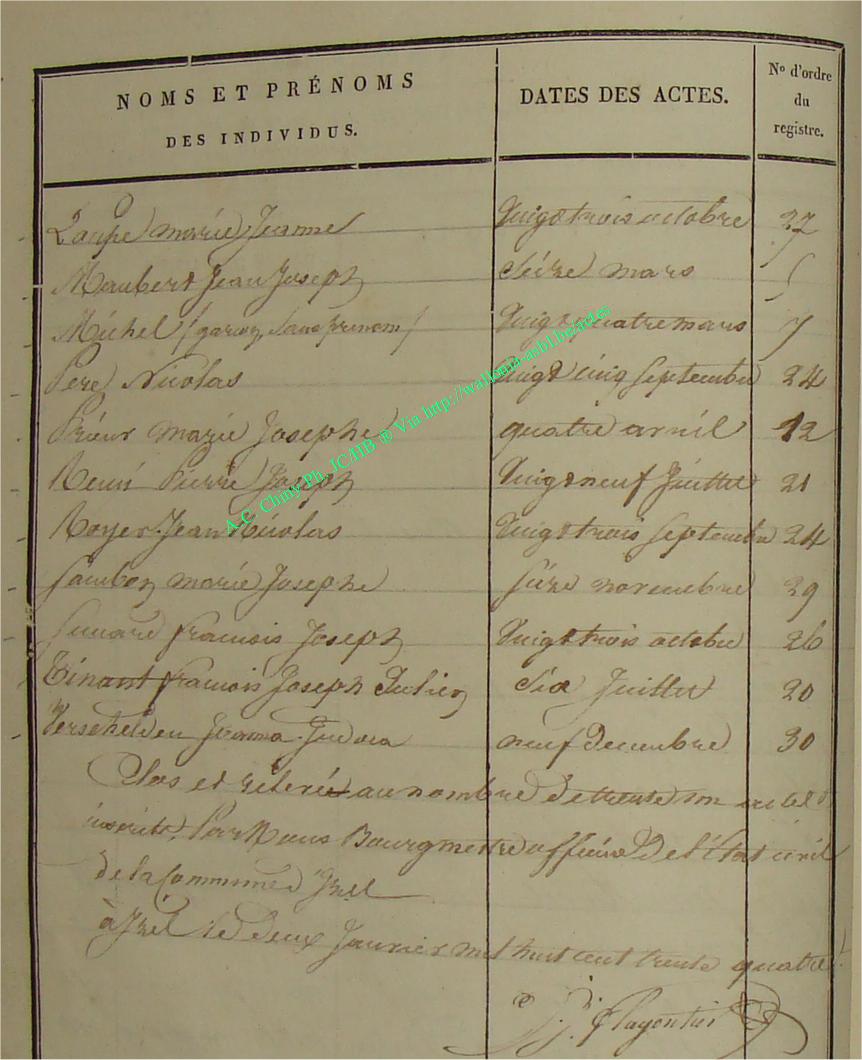 NOMS ET PRÉNOMS
DES INDIVIDUS.
DATES DES ACTES.
No d'ordre
du
registre.
marie Jeanne Vingt trois octobre 27
Maubert Jean Joseph seize mars 5
Michel (garçon sans prenom) Vingt quatre mars 7
Peré Nicolas Vingt cinq Septembre 24
Prieur marie Josephe quatre avril 12
Henri Pierre Joseph Vingt neuf Juillet 21
Royer Jean Nicolas Vingt trois Septembre 24
marie Josephe seize novembre 29
francois Joseph Vingt trois octobre 26
Tinant francois Joseph Julien six Juillet 20
neuf decembre 30
Clos et au nombre de trente un actes
inscrits Par Nous Bourgmestre officier De l'État civil
de la Commune d'Izel
à Izel le deux Janvier mil huit cent trente quatre
A.C. Chiny Ph. JCHB ® Via http://wallonia-asbl.be/actes